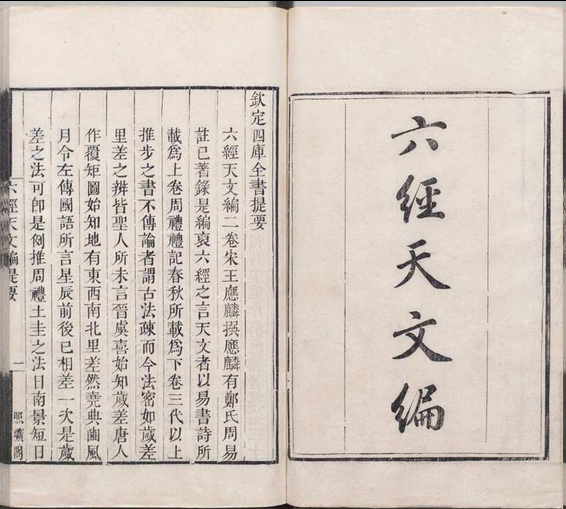 六經天文編
欽定四庫全書提要
六經天文編二卷宋王應麟撰應麟有鄭氏周易
註已著錄是編裒六經之言天文者以易書詩所
載爲上卷周禮禮記春秋所載爲下卷三代以上
推步之書不傳論者謂古法疎而今法密如歲差
里差之辨皆聖人所未言晉虞喜始知歲差唐人
作覆矩圖始知地有東西南北里差然堯典豳風
月令左傳國語所言星辰前後已相差一次是歲
差之法可卽是例推周禮土圭之法日南景短日
六經天文編提要
一
照曠閣